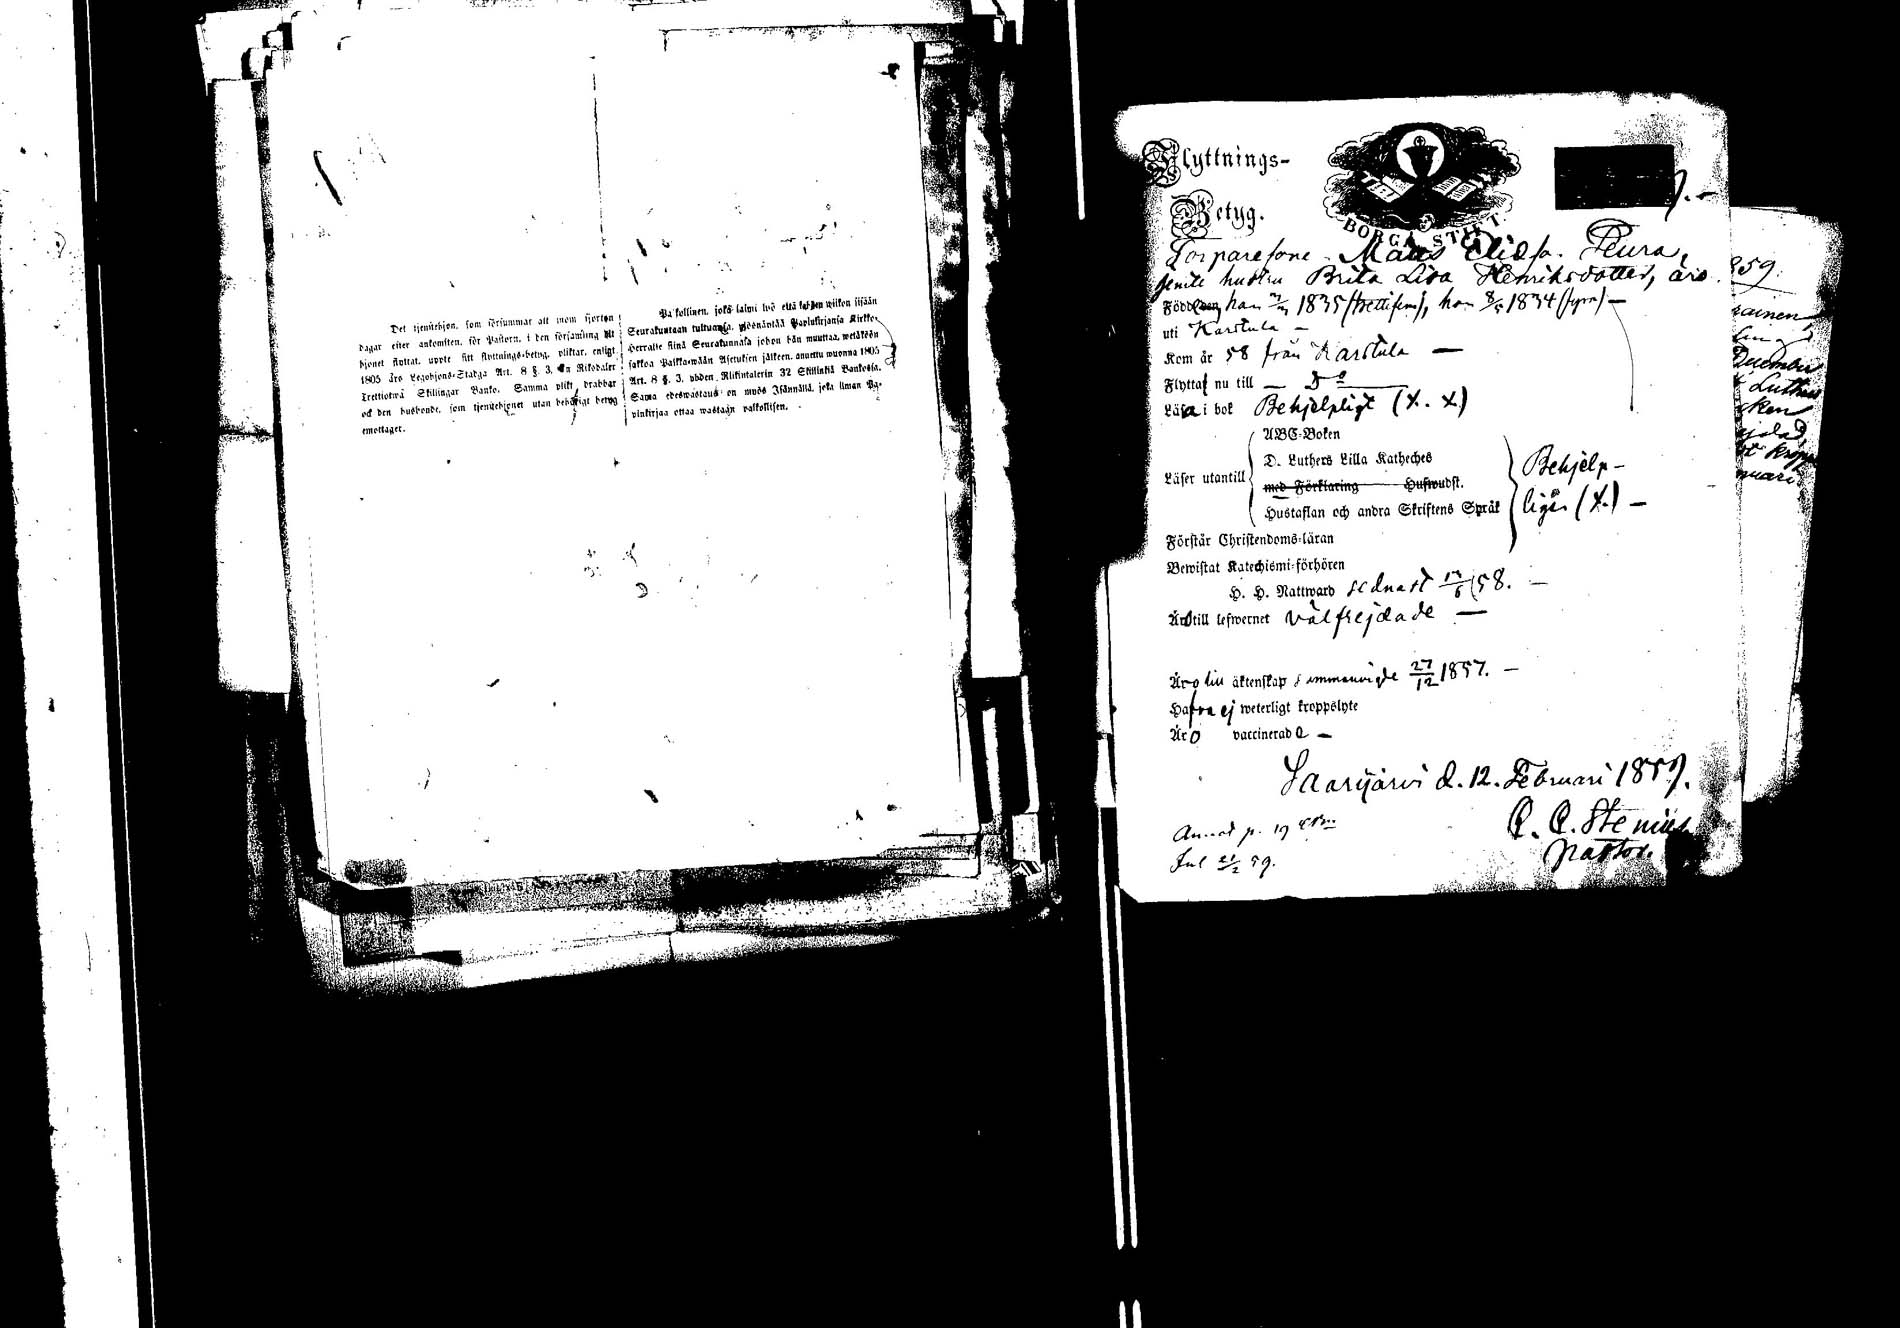 Det tjenstehjon, som försummar att inom fjorton
dagar efter ankomsten, för Pastorn, i den församling dit
hjonet flyttat, uppte sitt flyttnings-betyg, pliktar, enligt
1805 års Legohjons-Stadga Art. 8 §. 3, En Riksdaler
Trettiotwå Skillingar Banko. Samma plikt drabbar
ock den husbonde, som tjenstehjonet utan behörigt betyg
emottaget.
Palkollinen, joka laimi lyö että wiikon sisään
Seurakuntaan tultuansa, ylösnäyttää Papinkirjansa Kirkko-
Herralle siinä Seurakunnassa johon hän muuttaa, wetäköön
sakkoa Palkka-wään Asetuksen jälkeen, annettu wuonna 1805
Art. 8 §. 3, yhden Riikintalerin 32 Killinkiä Bankossa.
Sama edeswastaus on myös Isännällä, joka ilman Pa-
pinkirjaa ottaa wastaan palkollisen.
Flyttnings-
Betyg.
BORGÅ STIFT.
Torparesone Matts Eliss. Peura,
jemte hustru Brita Lisa Henriksdotter, äro
Född den han 1835 (trettifem), hon 8/ 1834 (fyra) —
uti Karstula —
Kom år 58 från Karstula —
Flytta nu till — Do —
Läsa i bok Behjelpligt (X. X)
Läser utantill
ABC-Boken
D. Luthers Lilla Katheches
med Förklaring Hufwudst.
Hustaflan och andra Skriftens Språk
Behjelp-
ligt (X.) —
Förstår Christendoms-läran
Bewistat Katechismi-förhören
H. H. Nattward sednast /6 58. —
Äro till lefwernet välfrejdade —
Äro till äktenskap sammanvigde 27/12 1857. —
Hafva ej weterligt kroppslyte
Äro vaccinerade —
Saarijärvi d. 12. Februari 1859.
C. C. Stenius
Pastor.
Annot p. 19
Jul /2 59.
859.
December
Luth